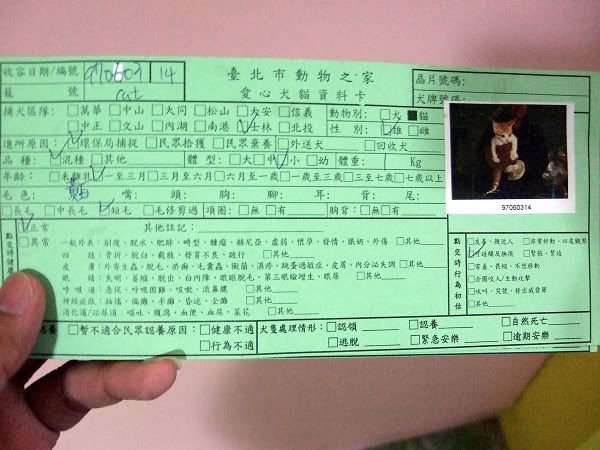 臺北市動物之家
收容日期/編號 970603 14 晶片號碼:
籠 號 cat 愛心犬貓資料卡 犬牌號碼:
捕犬區隊: □萬華 □中山 □大同 □松山 □大安 □信義 動物別: □犬 ■貓
□中正 □文山 □內湖 □南港 □士林 □北投 性 別: □雄 □雌
進所原因: □環保局捕捉 □民眾拾獲 □民眾棄養 □外送犬 □回收犬
品 種: □混種 □其他 體 型: □大 □中 □小 □幼 體重: 1 Kg
年齡: □未離乳 □一至三月 □三月至六月 □六月至一歲 □一歲至三歲 □三歲至七歲 □七歲以上
毛 色: 嘴: 頭: 胸: 腳: 耳: 背: 尾:
□長毛 □中長毛 □短毛 □毛修剪過 項圈: □無 □有 胸背: □無 □有
97060314
□正常 其他註記:
□異常 一般外表: 別瘦, 脫水, 肥胖, 畸型, 腫瘤, 赫尼亞, 虛弱, 懷孕, 發情, 脹奶, 外傷 □其他
四 肢: 骨折, 脫臼, 截肢, 發育不良, 跛行 □其他
皮 膚: 外寄生蟲, 脫毛, 禿癬, 毛囊蟲, 黴菌, 濕疹, 跳蚤過敏症, 皮膚, 內分泌失調 □其他
眼 睛: 失明, 萎縮, 脫出, 白內障, 角膜炎, 眼瞼脫毛, 第三眼瞼增生, 眼屎 □其他
呼 吸 道: 急促, 呼吸困難, 咳嗽, 流鼻膿 □其他
神經症狀: 抽搐, 偏癱, 半癱, 昏迷, 全癱 □其他
消化道/泌尿道: 嘔吐, 腹瀉, 血便, 血尿, 菜花 □其他
點交時健康
點交時行為初估
□友善, 親近人 □非常好動, 四處觀察
□可碰觸及撫摸 □緊張, 緊迫
□害羞, 長縮, 不想移動
□企圖咬人/主動攻擊
□吠叫, 哭號, 發出威脅聲
□其他
□暫不適合民眾認養原因: □健康不適 犬隻處理情形: □認領 □認養 □自然死亡
□行為不適 □逃脫 □緊急安樂 □逾期安樂